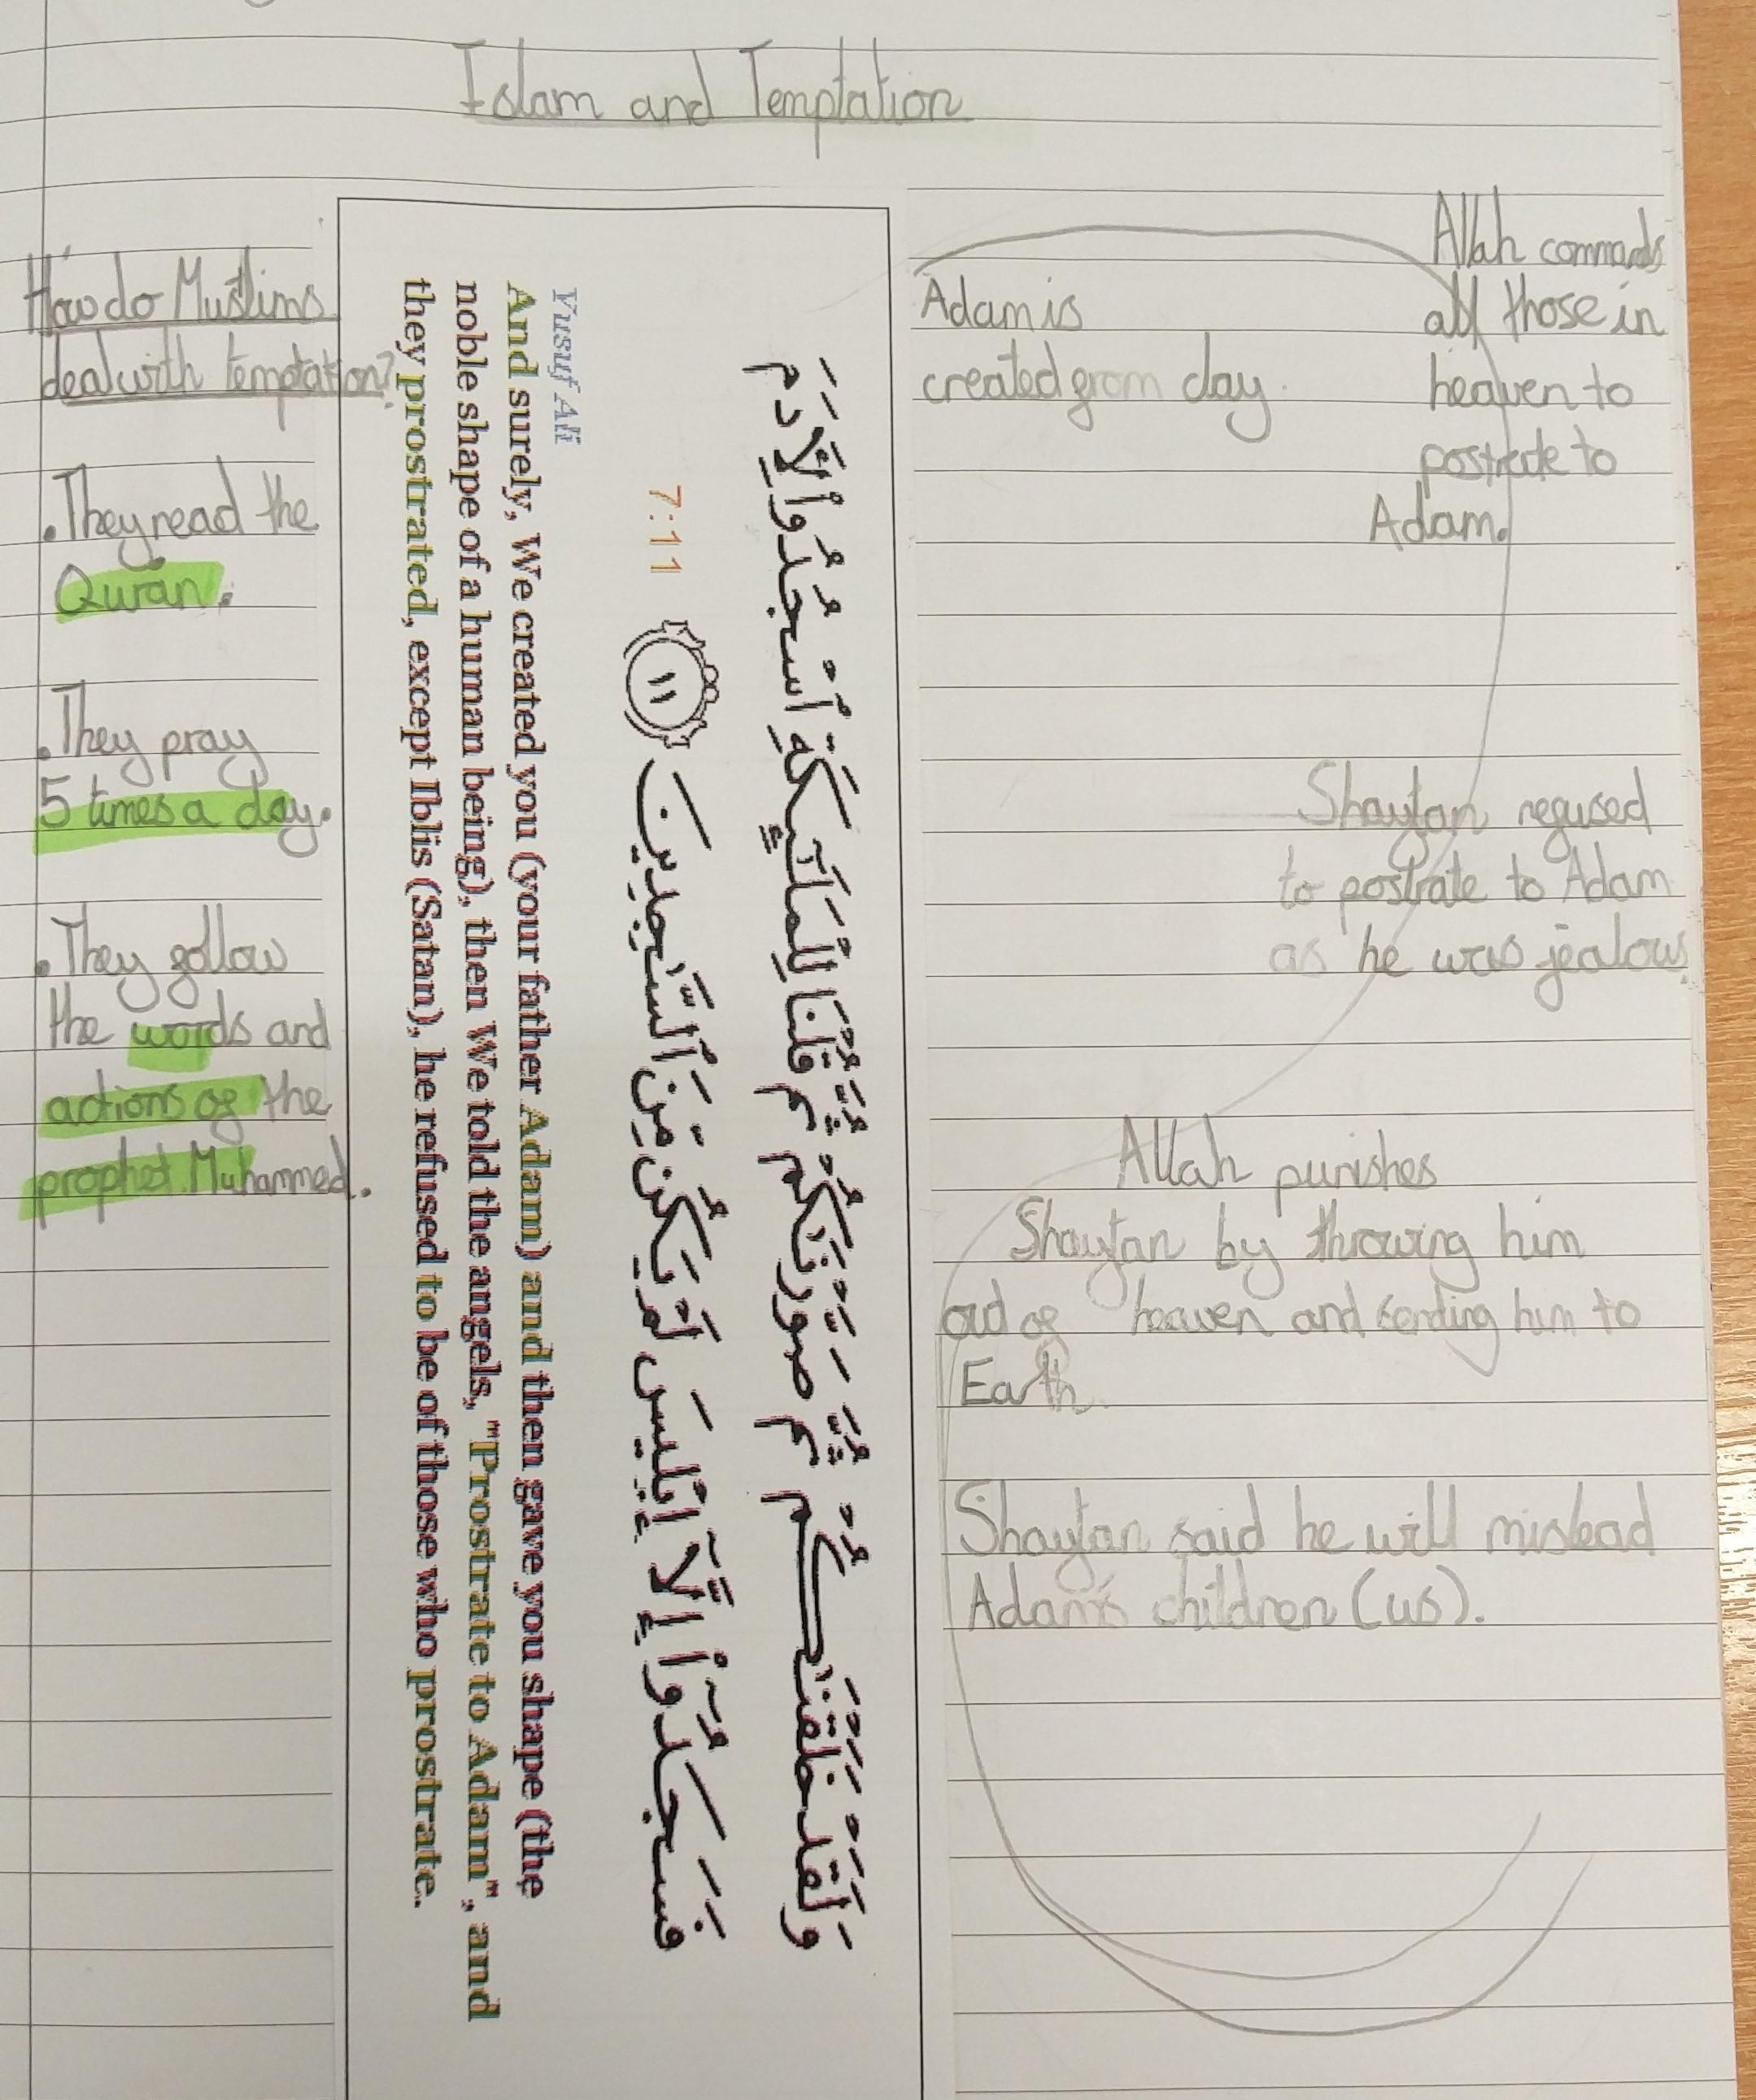 Islam and Temptation
How do Muslims
deal with temptation?
. They read the
Quran.
. They pray
5 times a day.
. They follow
the words and
actions of the
prophet Muhammed.
وَلَقَدْ خَلَقْنَٰكُمْ ثُمَّ صَوَّرْنَٰكُمْ ثُمَّ قُلْنَا لِلْمَلَٰٓئِكَةِ ٱسْجُدُوا۟ لِءَادَمَ
فَسَجَدُوٓا۟ إِلَّآ إِبْلِيسَ لَمْ يَكُن مِّنَ ٱلسَّٰجِدِينَ ١١ 7:11
Yusuf Ali
And surely, We created you (your father Adam) and then gave you shape (the
noble shape of a human being), then We told the angels, "Prostrate to Adam", and
they prostrated, except Iblis (Satan), he refused to be of those who prostrate.
Adam is
created from clay.
Allah commands
all those in
heaven to
postrate to
Adam.
Shaytan refused
to postrate to Adam
as he was jealous.
Allah punishes
Shaytan by throwing him
out of heaven and sending him to
Earth.
Shaytan said he will mislead
Adam's children (us).